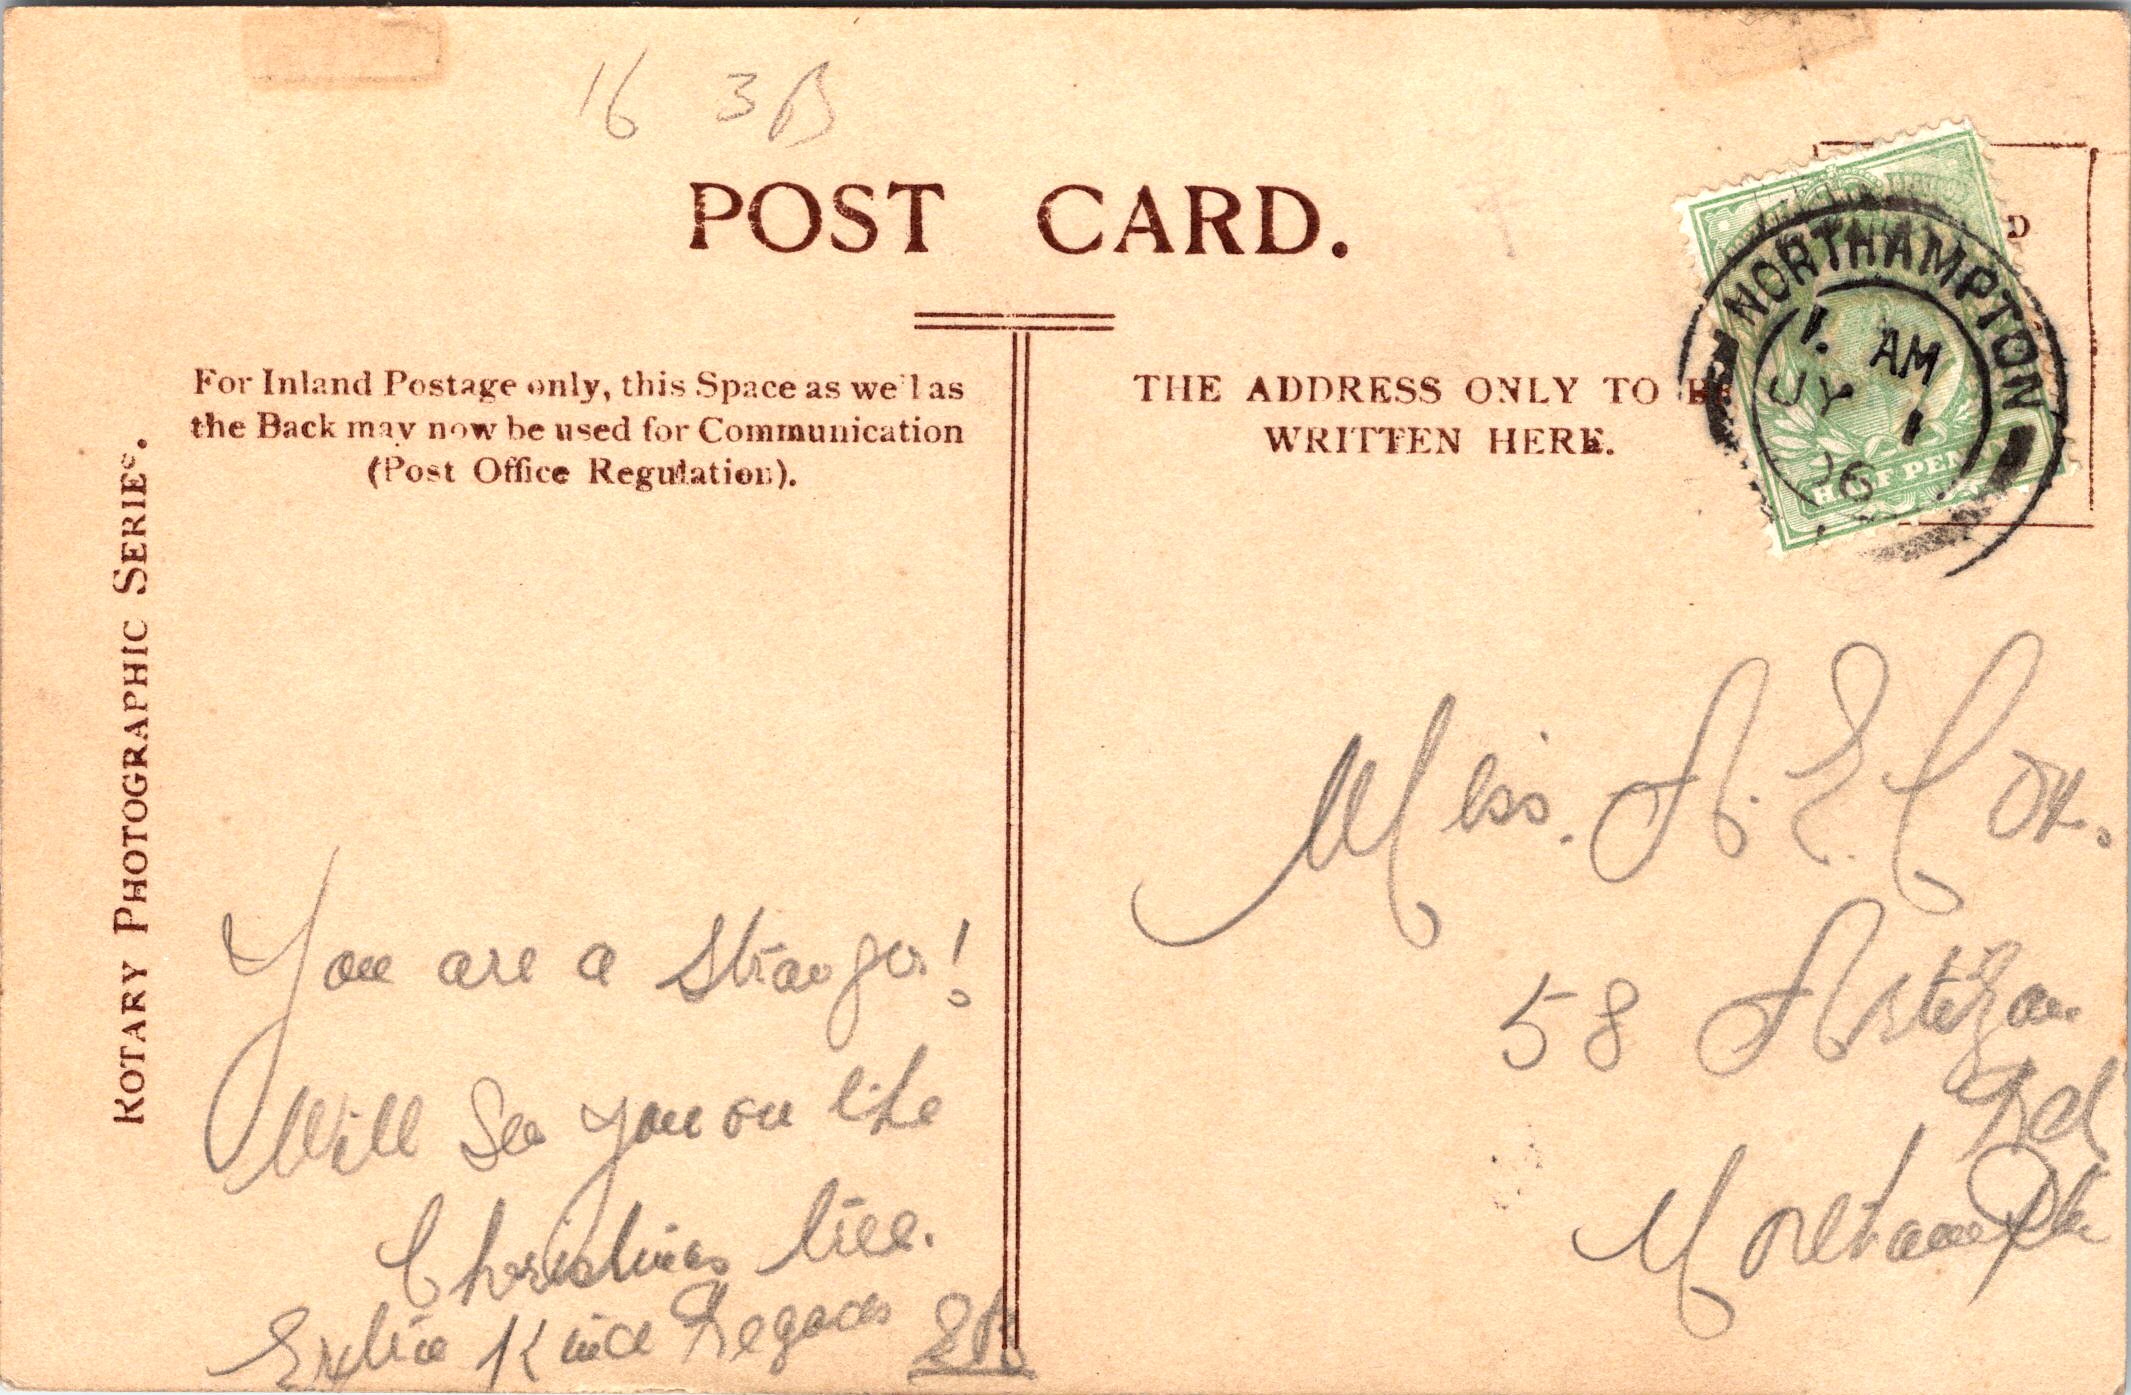 16 3B
POST CARD.
For Inland Postage only, this Space as well as
the Back may now be used for Communication
(Post Office Regulation).
THE ADDRESS ONLY TO BE
WRITTEN HERE.
D
NORTHAMPTON
1. AM
JY 1
06
HALF PENNY
ROTARY PHOTOGRAPHIC SERIES.
Miss. A. E. Cox.
58 Artizan
Rd
Northampton
You are a stranger!
Will see you on the
Christmas tree.
Extra Kind Regards